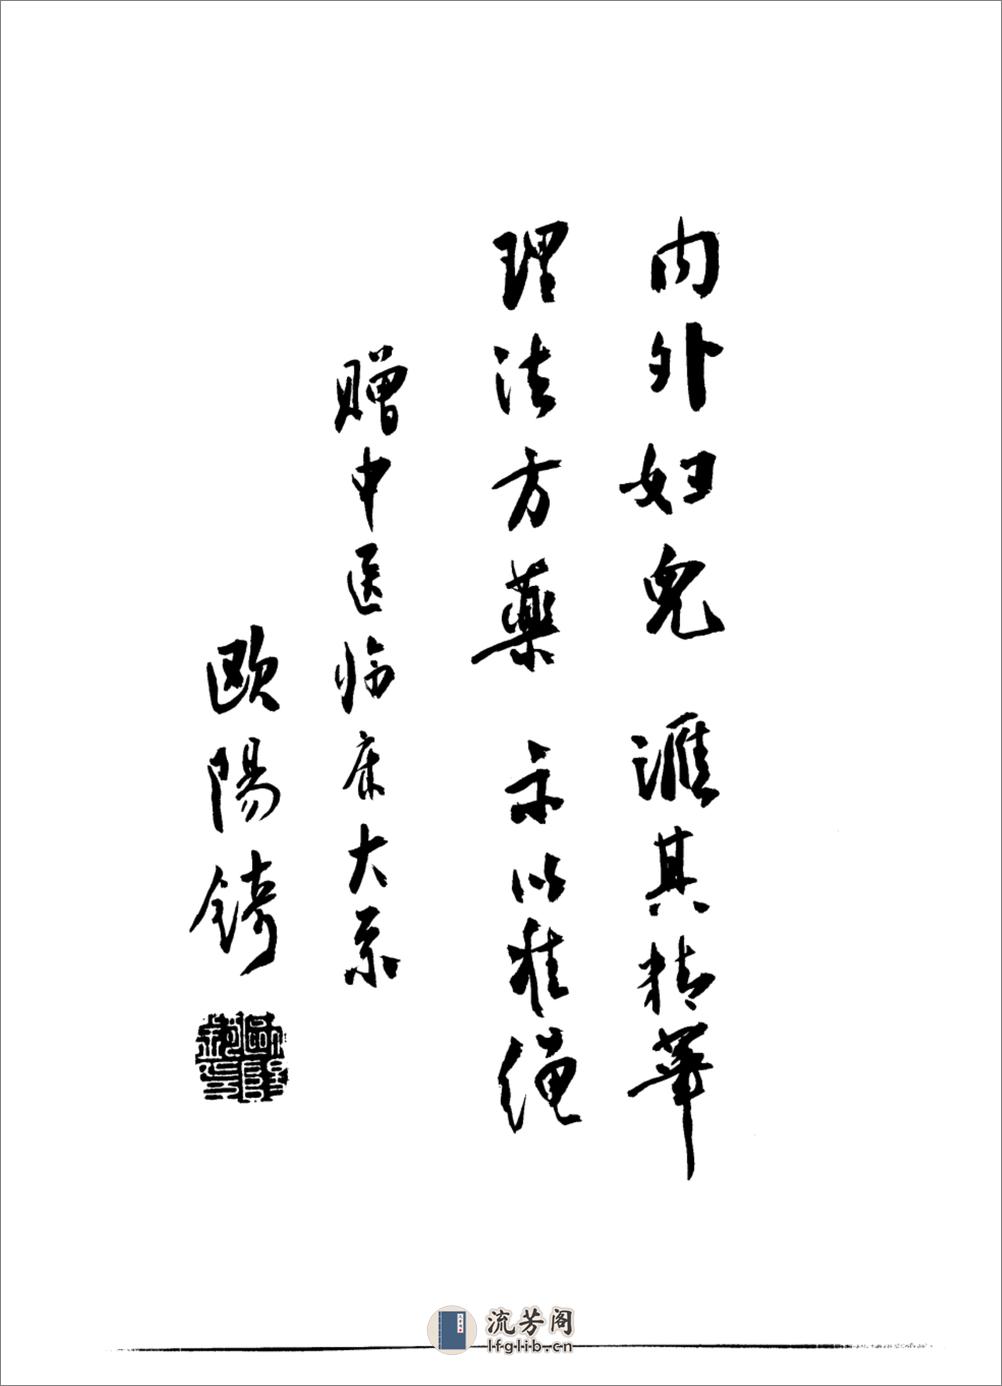 内外妇兒 滙其精華
理法方藥 示以准绳
赠中医临床大系
欧陽錡
流芳阁
lfglib.cn